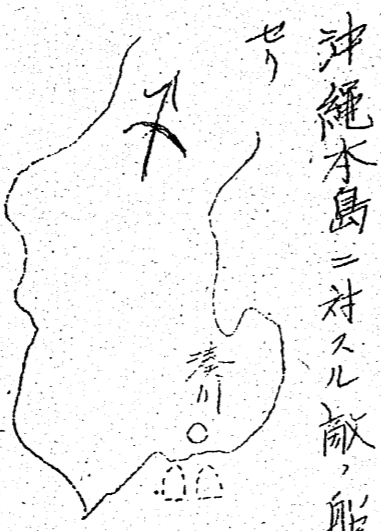 沖縄本島ニ対スル敵ノ
セリ
湊川